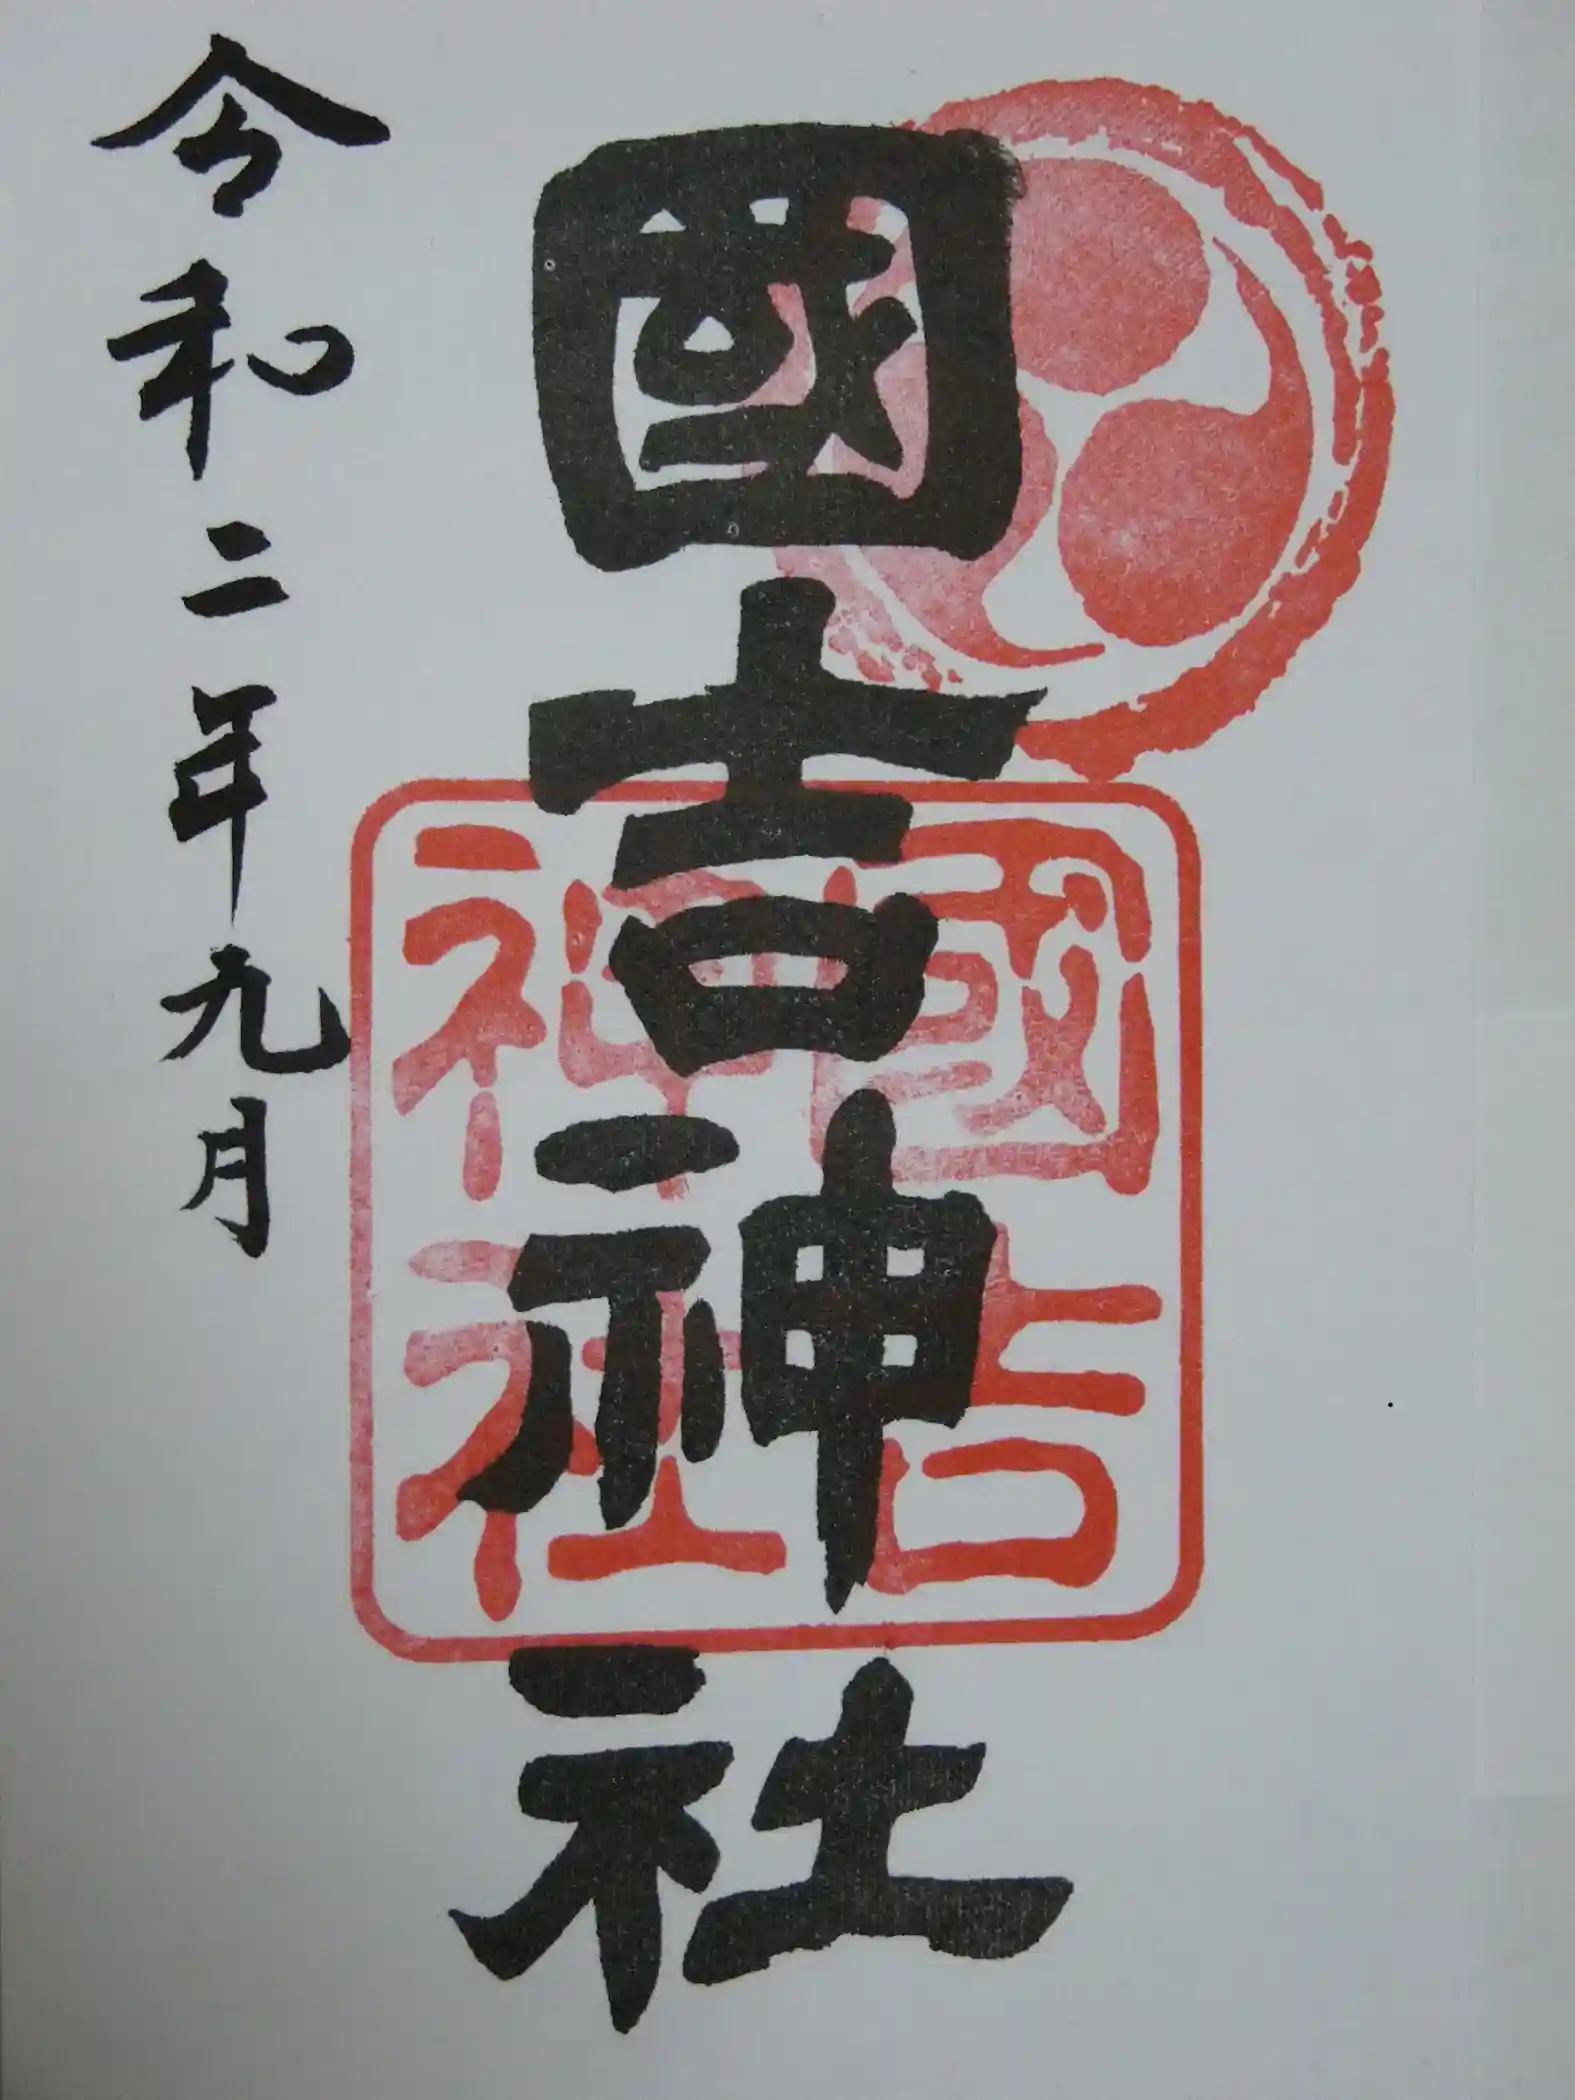 國吉神社
國吉
神社
令和二年九月